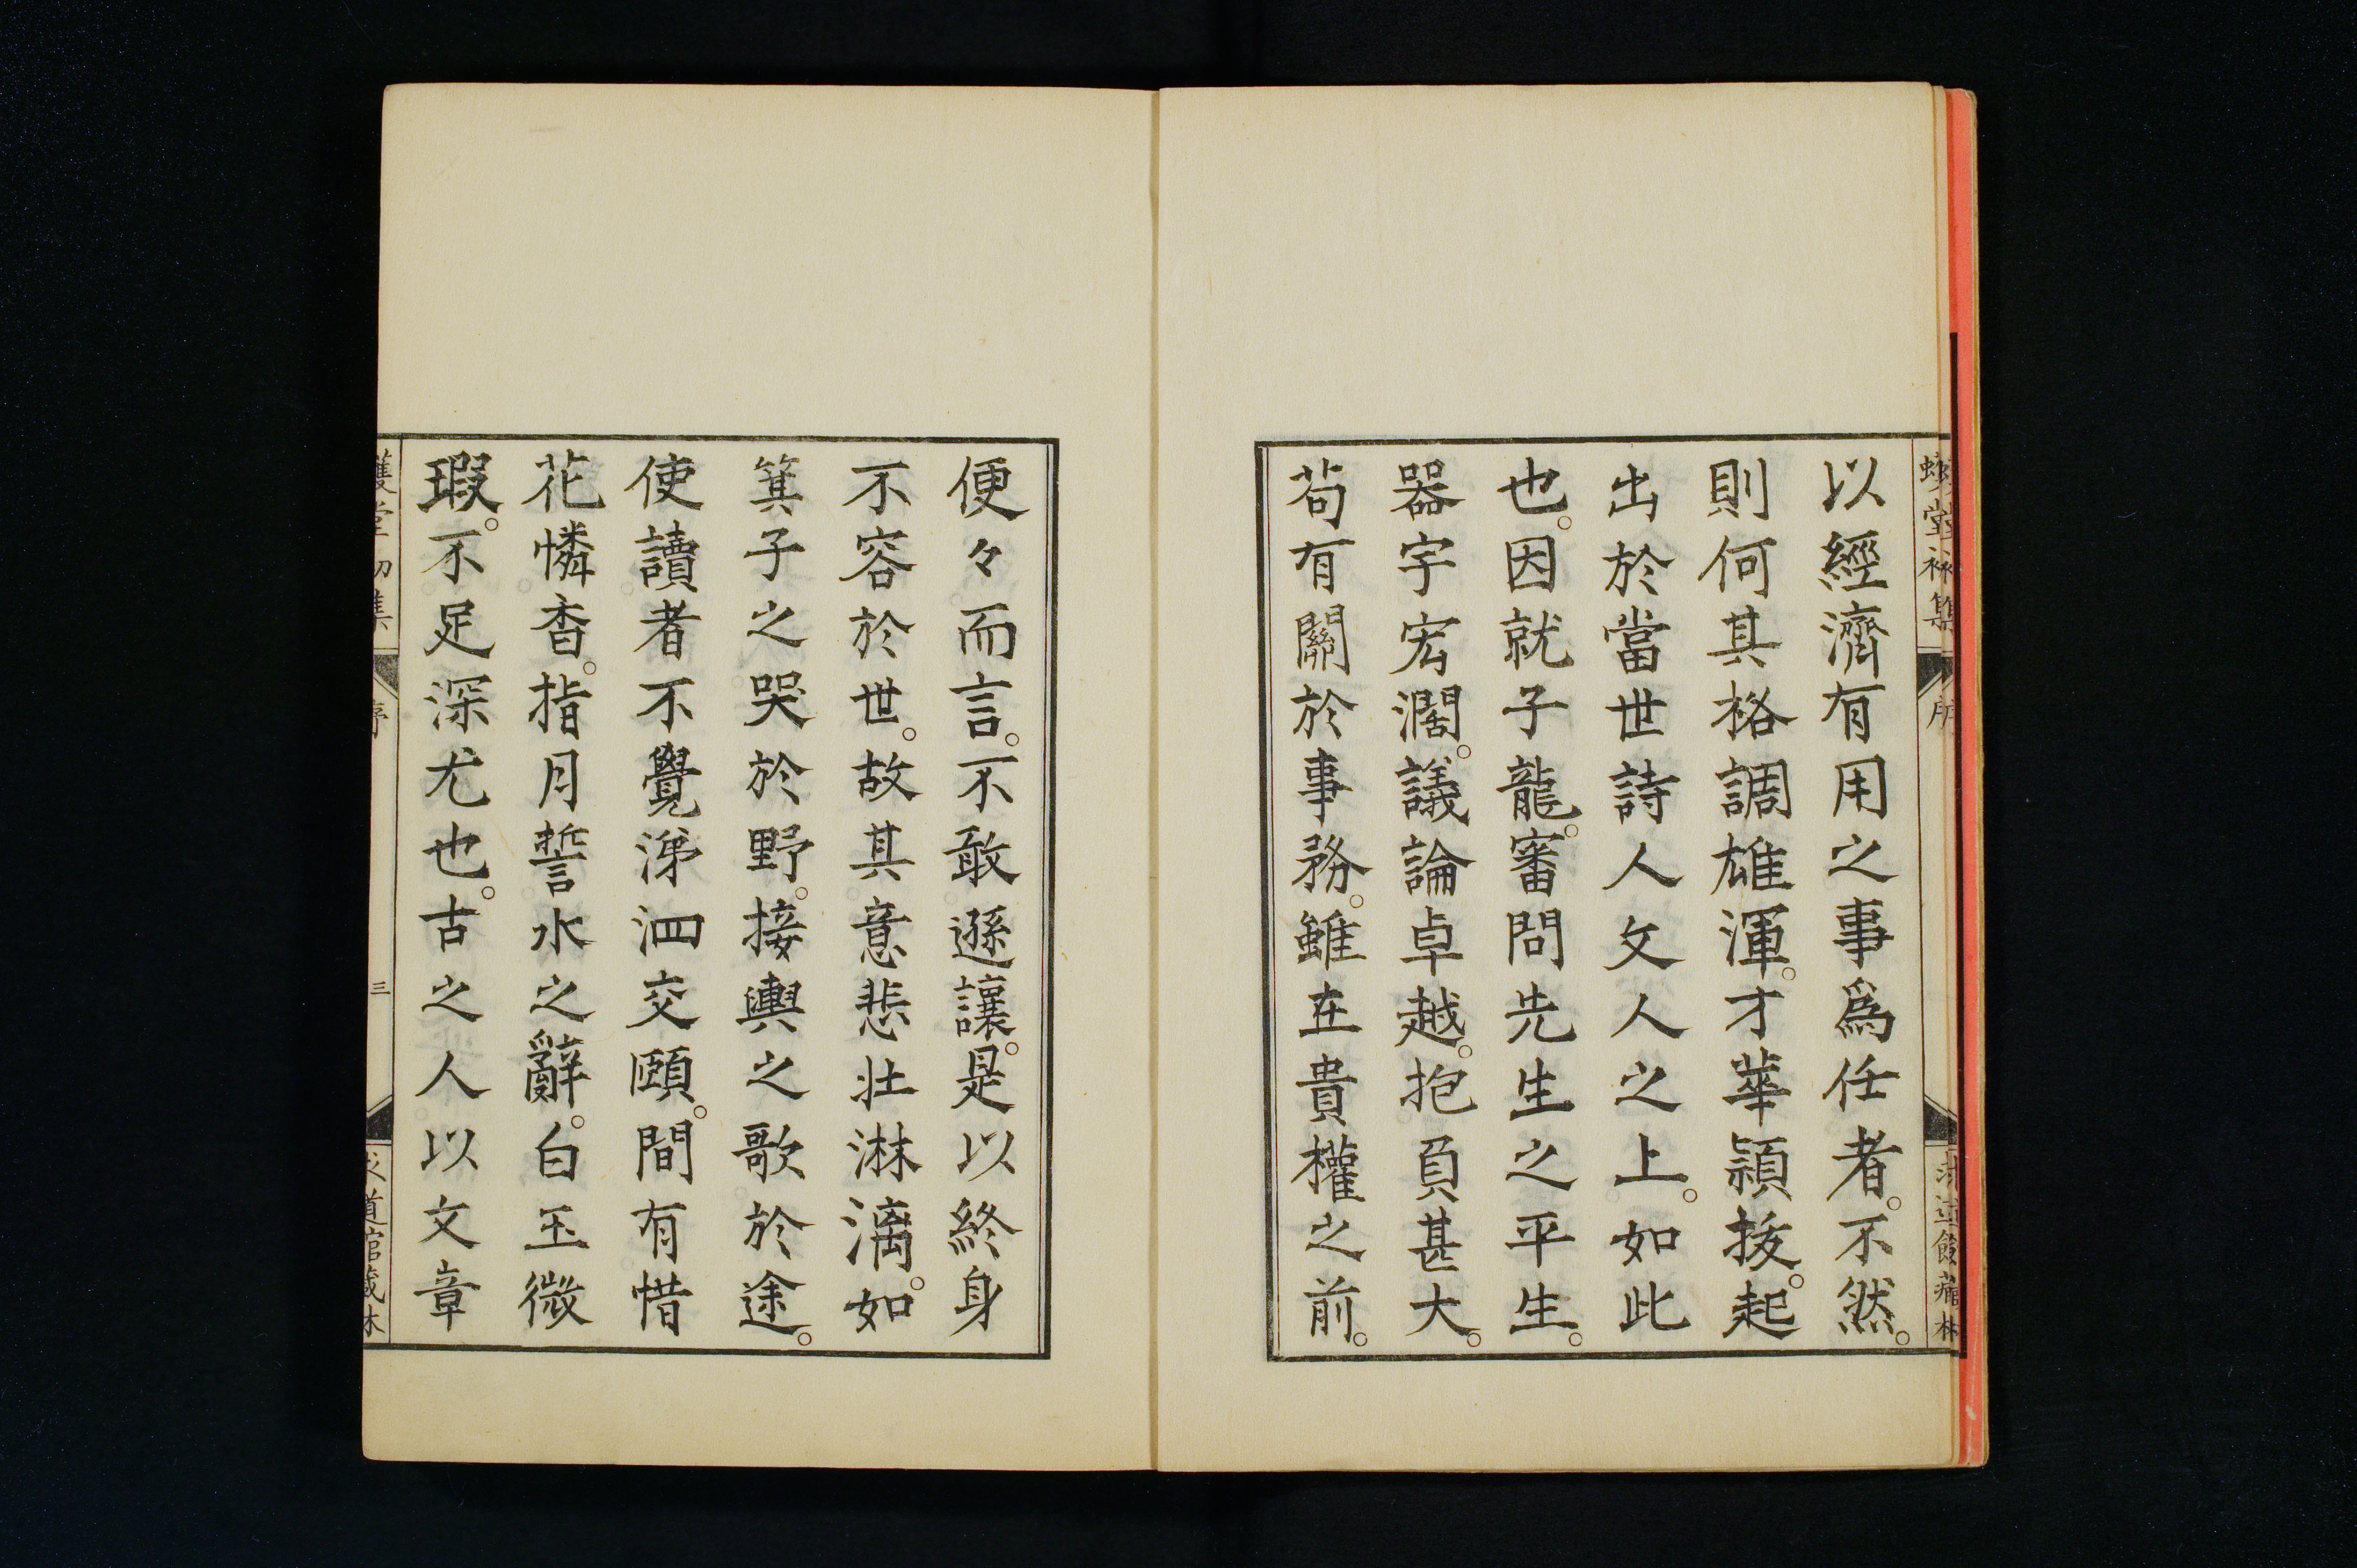 以經濟有用之事爲任者。不然。
則何其格調雄渾。才華穎拔。起
出於當世詩人文人之上。如此
也。因就子龍。審問先生之平生。
器宇宏濶。議論卓越。抱負甚大。
苟有關於事務。雖在貴權之前。
便々而言。不敢遜讓。是以終身
不容於世。故其意悲壯淋漓。如
箕子之哭於野。接輿之歌於途。
使讀者不覺涕泗交頤。間有惜
花憐香。指月誓水之辭。白玉微
瑕。不足深尤也。古之人以文章
序
三
道館藏本